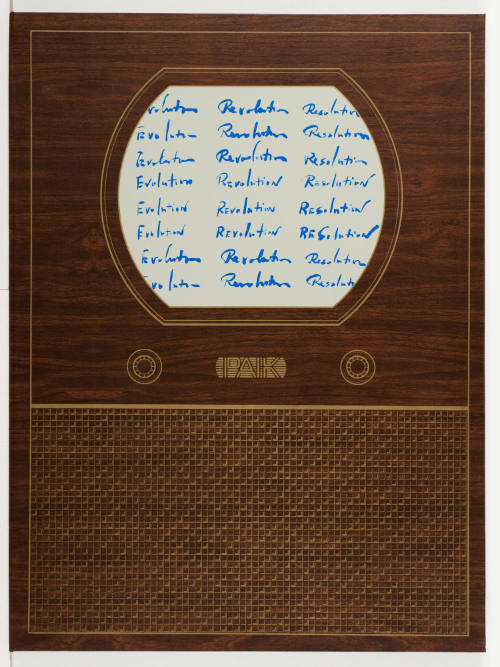 Evolution Revolution Resolution
Evolution Revolution Resolution
Evolution Revolution Resolution
Evolution Revolution Resolution
Evolution Revolution Resolution
Evolution Revolution RESolution
Evolution Revolution Resolution
Evolution Revolution Resolution
PAIK